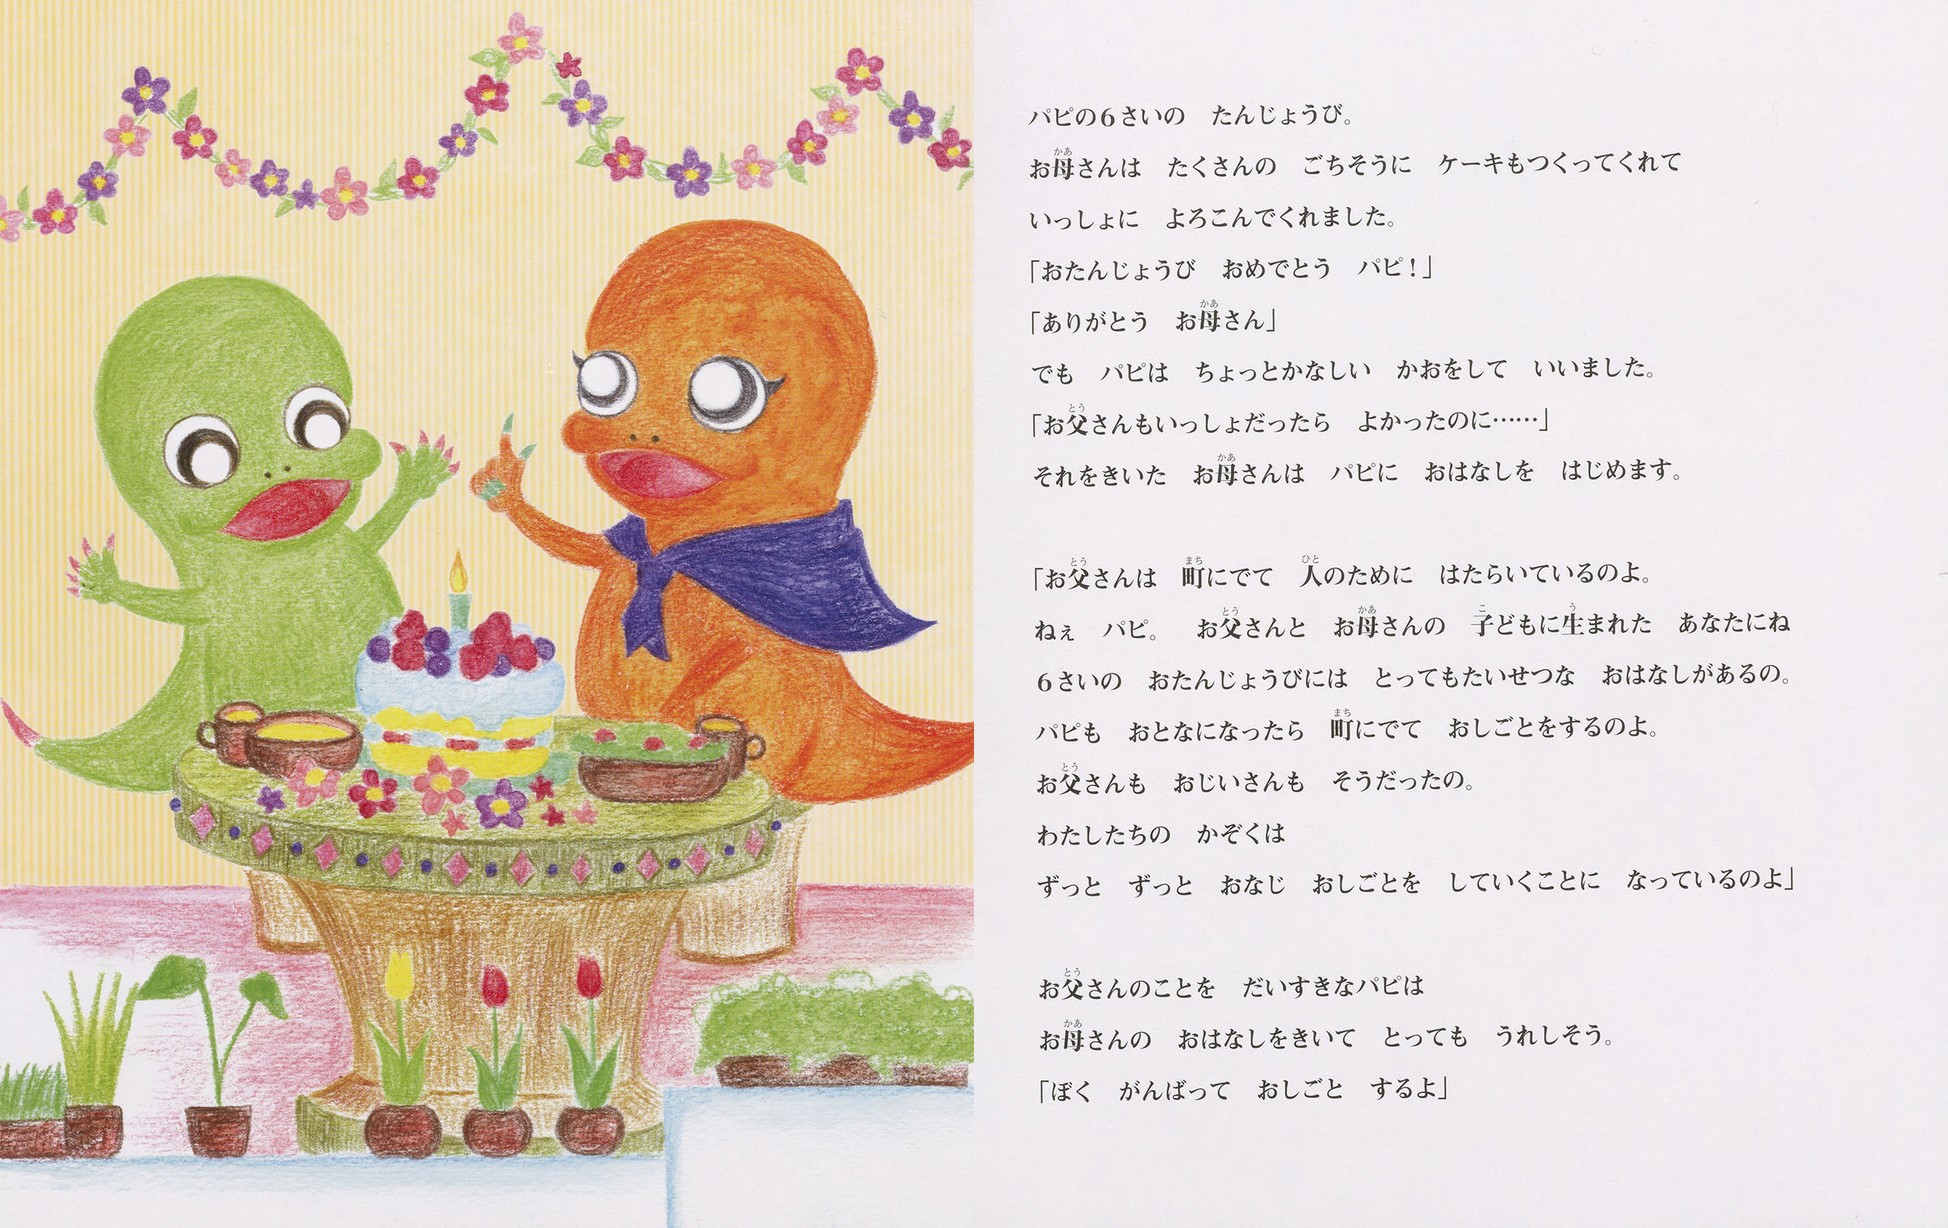 パピの6さいの　たんじょうび。
お母さんは　たくさんの　ごちそうに　ケーキもつくってくれて
いっしょに　よろこんでくれました。
「おたんじょうび　おめでとう　パピ！」
「ありがとう　お母さん」
でも　パピは　ちょっとかなしい　かおをして　いいました。
「お父さんもいっしょだったら　よかったのに……」
それをきいた　お母さんは　パピに　おはなしを　はじめます。
「お父さんは　町にでて　人のために　はたらいているのよ。
ねぇ　パピ。　お父さんと　お母さんの　子どもに生まれた　あなたにね
6さいの　おたんじょうびには　とってもたいせつな　おはなしがあるの。
パピも　おとなになったら　町にでて　おしごとをするのよ。
お父さんも　おじいさんも　そうだったの。
わたしたちの　かぞくは
ずっと　ずっと　おなじ　おしごとを　していくことに　なっているのよ」
お父さんのことを　だいすきなパピは
お母さんの　おはなしをきいて　とっても　うれしそう。
「ぼく　がんばって　おしごと　するよ」